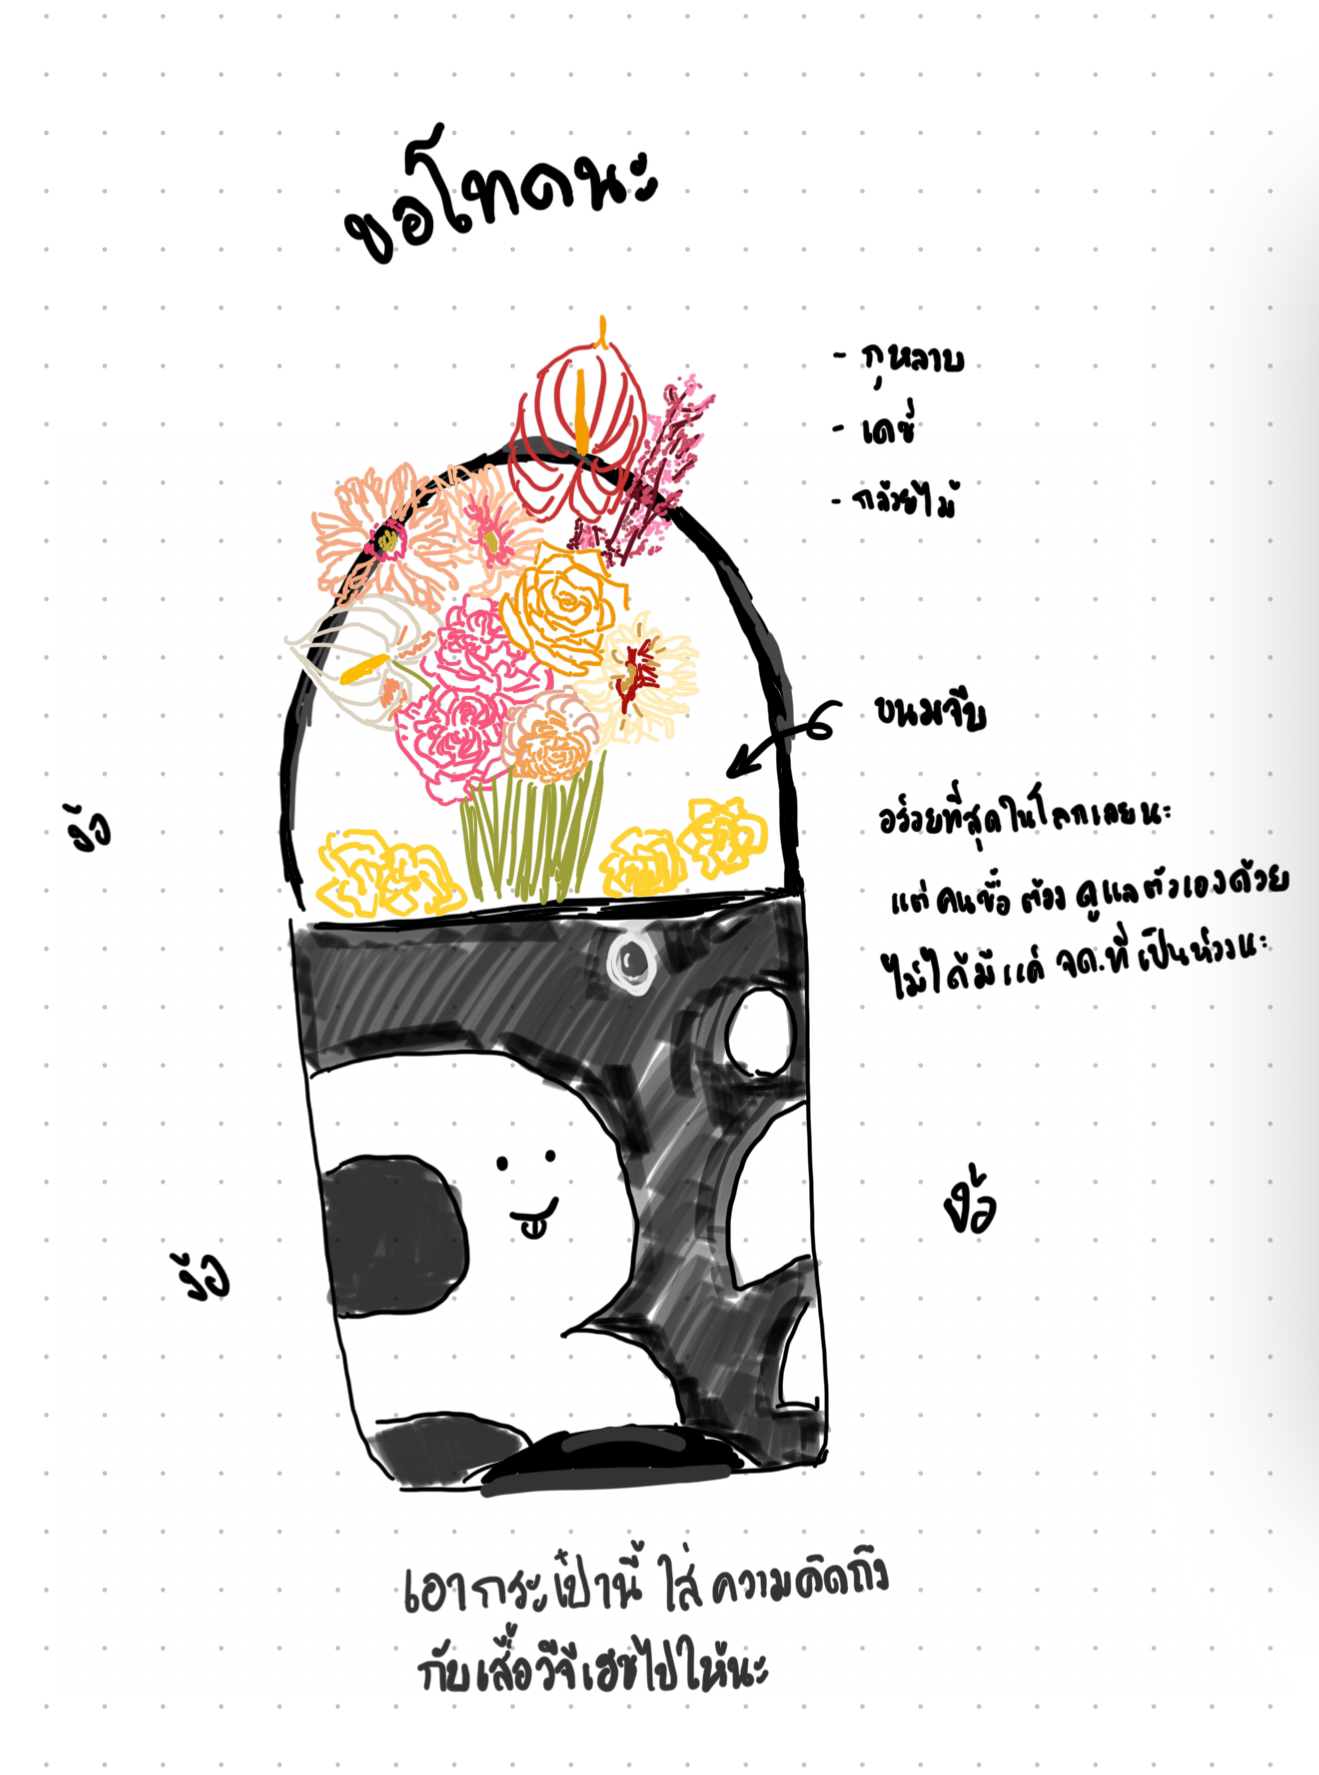 ขอโทดนะ
- กุหลาบ
- เดซี่
- กล้วยไม้
ขนมจีบ
อร่อยที่สุดในโลกเลยนะ
แต่ คนซื้อ ต้อง ดูแลตัวเองด้วย
ไม่ได้มีแค่ จด. ที่เป็นห่วงนะ
งื้อ
งื้อ
งื้อ
เอากระเป๋านี้ ใส่ ความคิดถึง
กับเสื้อวีจีเฮชไปให้นะ